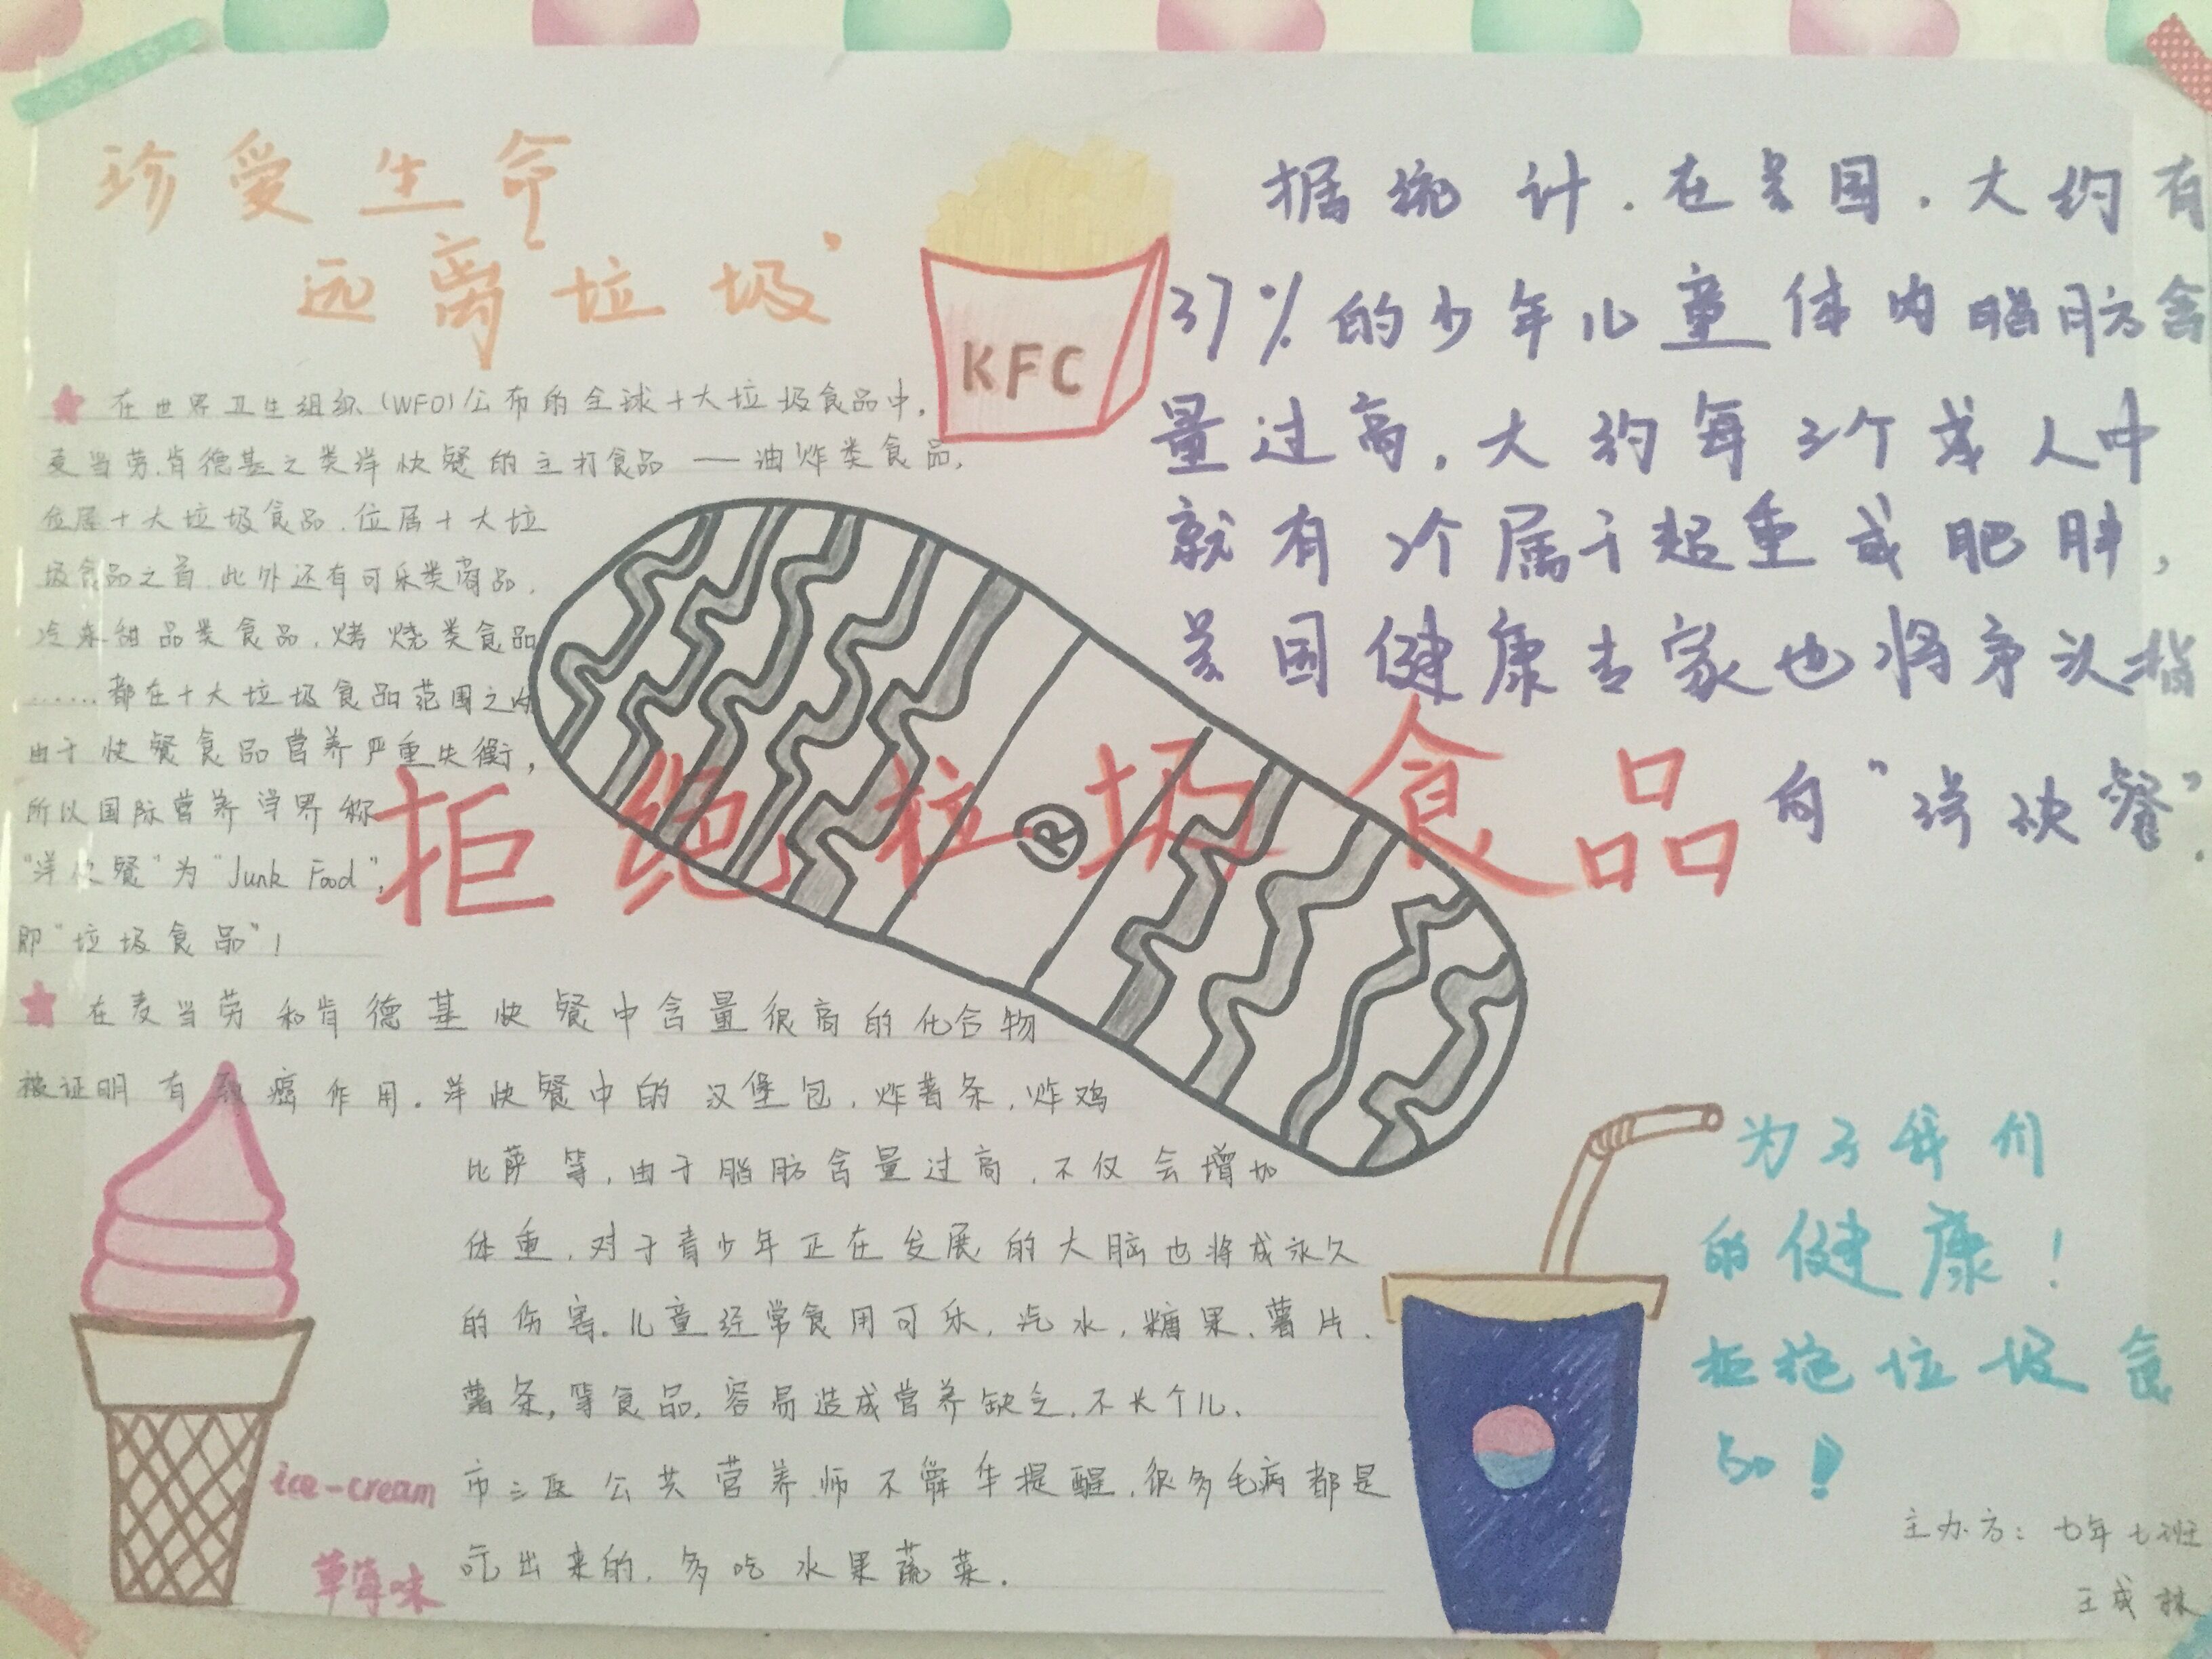 珍爱生命
远离“垃圾”
在世界卫生组织(WFO)公布的全球十大垃圾食品中，
麦当劳、肯德基之类洋快餐的主打食品——油炸类食品，
位居十大垃圾食品、位属十大垃
圾食品之首，此外还有可乐类商品，
冷冻甜品类食品，烤烧类食品
……都在十大垃圾食品范围之内
由于快餐食品营养严重失衡，
所以国际营养学界称
“洋快餐”为“Junk Food”，
即“垃圾食品”！
在麦当劳和肯德基快餐中含量很高的化合物
被证明有致癌作用。洋快餐中的汉堡包，炸薯条，炸鸡
比萨等，由于脂肪含量过高，不仅会增加
体重，对于青少年正在发展的大脑也将成永久
的伤害。儿童经常食用可乐，汽水，糖果、薯片、
薯条，等食品，容易造成营养缺乏，不长个儿、
市三医公共营养师不舜华提醒，很多毛病都是
吃出来的，多吃水果蔬菜。
KFC
据统计，在美国，大约有
37%的少年儿童体内脂肪含
量过高，大约每3个成人中
就有2个属于超重或肥胖，
美国健康专家也将矛头指
向“洋快餐”。
拒绝垃圾食品
®
ice-cream
草莓味
为了我们
的健康！
拒绝垃圾食
品！
主办方：七年七班
王成林